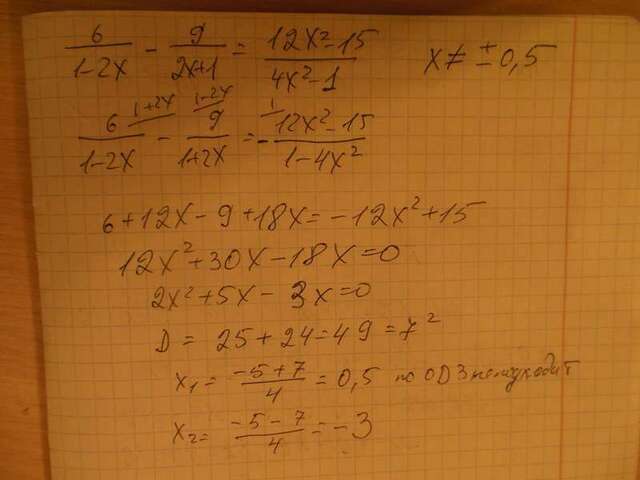 6/(1-2x) - 9/(2x+1) = (12x²-15)/(4x²-1) x ≠ ±0,5
6/(1-2x) (1+2x - 9/(1+2x) (1-2x = - (12x²-15)/(1-4x²) (1
6+12x-9+18x=-12x²+15
12x²+30x-18x=0
2x²+5x-3x=0
D = 25+24=49=7²
x₁= (-5+7)/4 = 0,5 по ОДЗ не подходит
x₂= (-5-7)/4 = -3